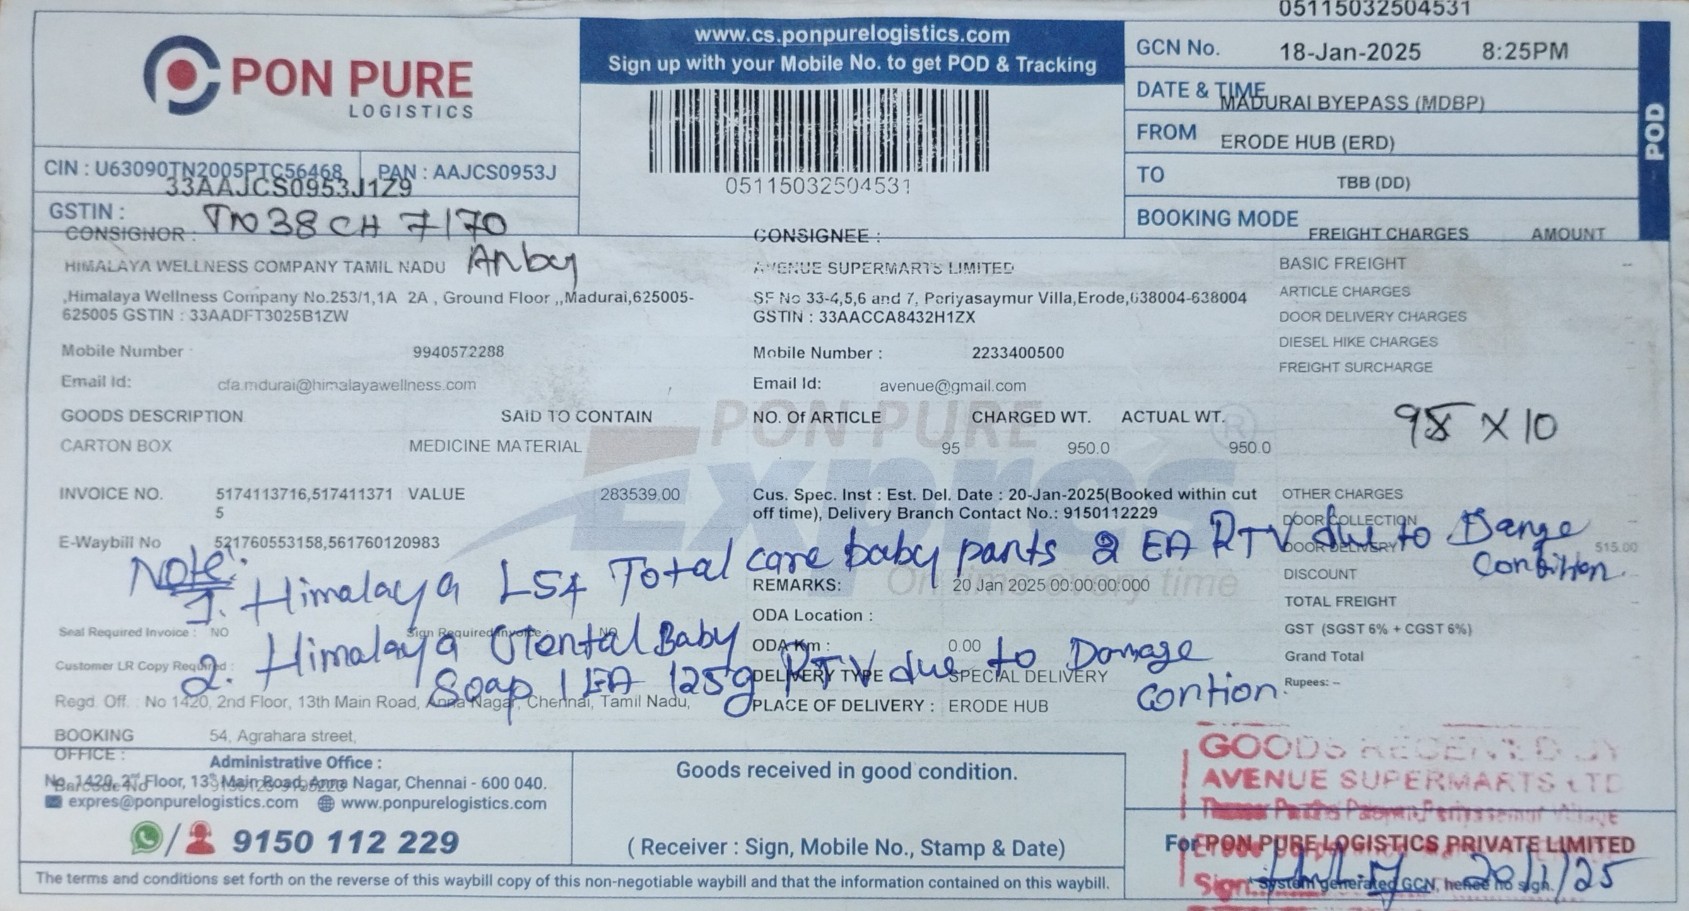 05115032504531
PON PURE
LOGISTICS
www.cs.ponpurelogistics.com
Sign up with your Mobile No. to get POD & Tracking
05115032504531
GCN No. 18-Jan-2025 8:25PM
DATE & TIME
MADURAI BYEPASS (MDBP)
FROM ERODE HUB (ERD)
TO TBB (DD)
BOOKING MODE
POD
CIN : U63090TN2005PTC56468 PAN : AAJCS0953J
33AAJCS0953J1Z9
GSTIN :
TN 38 CH 7170
CONSIGNOR : CONSIGNEE : FREIGHT CHARGES AMOUNT
HIMALAYA WELLNESS COMPANY TAMIL NADU AVENUE SUPERMARTS LIMITED BASIC FREIGHT --
,Himalaya Wellness Company No.253/1,1A 2A , Ground Floor ,,Madurai,625005-
625005 GSTIN : 33AADFT3025B1ZW
SF No 33-4,5,6 and 7, Periyasaymur Villa,Erode,638004-638004
GSTIN : 33AACCA8432H1ZX
ARTICLE CHARGES
DOOR DELIVERY CHARGES
DIESEL HIKE CHARGES
FREIGHT SURCHARGE
Mobile Number : 9940572288 Mobile Number : 2233400500
Email Id: cfa.mdurai@himalayawellness.com Email Id: avenue@gmail.com
GOODS DESCRIPTION SAID TO CONTAIN NO. Of ARTICLE CHARGED WT. ACTUAL WT.
CARTON BOX MEDICINE MATERIAL 95 950.0 950.0
95 X 10
PON PURE
Expres
On time every time
INVOICE NO. 5174113716,517411371 VALUE 283539.00
5
Cus. Spec. Inst : Est. Del. Date : 20-Jan-2025(Booked within cut
off time), Delivery Branch Contact No.: 9150112229
E-Waybill No 521760553158,561760120983
OTHER CHARGES
DOOR COLLECTION
DOOR DELIVERY 515.00
DISCOUNT
TOTAL FREIGHT
GST (SGST 6% + CGST 6%)
Grand Total
Rupees: –
Note:
1. Himalaya Total care baby pants 2 EA RTV due to
2. Himalaya Baby
Soap 1 EA 125g RTV due to Damage
contion.
REMARKS: 20 Jan 2025 00:00:00:000
ODA Location :
ODA Km : 0.00
DELIVERY TYPE SPECIAL DELIVERY
PLACE OF DELIVERY : ERODE HUB
Seal Required Invoice : NO Sign Required Invoice : NO
Customer LR Copy Required :
Regd. Off. : No 1420, 2nd Floor, 13th Main Road, Anna Nagar, Chennai, Tamil Nadu,
BOOKING 54, Agrahara street,
OFFICE :
Administrative Office :
No. 1420, 2nd Floor, 13th Main Road, Anna Nagar, Chennai - 600 040.
Barcode No
expres@ponpurelogistics.com www.ponpurelogistics.com
9150 112 229
Goods received in good condition.
( Receiver : Sign, Mobile No., Stamp & Date)
GOODS RECEIVED BY
AVENUE SUPERMARTS LTD
For PON PURE LOGISTICS PRIVATE LIMITED
Sign.
System generated GCN, hence no sign.
20/1/25
The terms and conditions set forth on the reverse of this waybill copy of this non-negotiable waybill and that the information contained on this waybill.